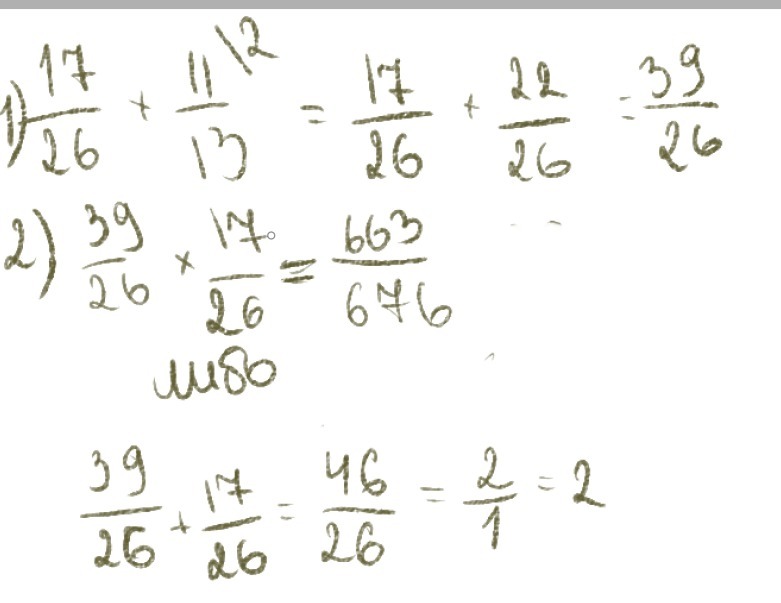 1) 17/26 + 11\2/13 = 17/26 + 22/26 = 39/26
2) 39/26 × 17/26 = 663/676
либо
39/26 + 17/26 = 46/26 = 2/1 = 2